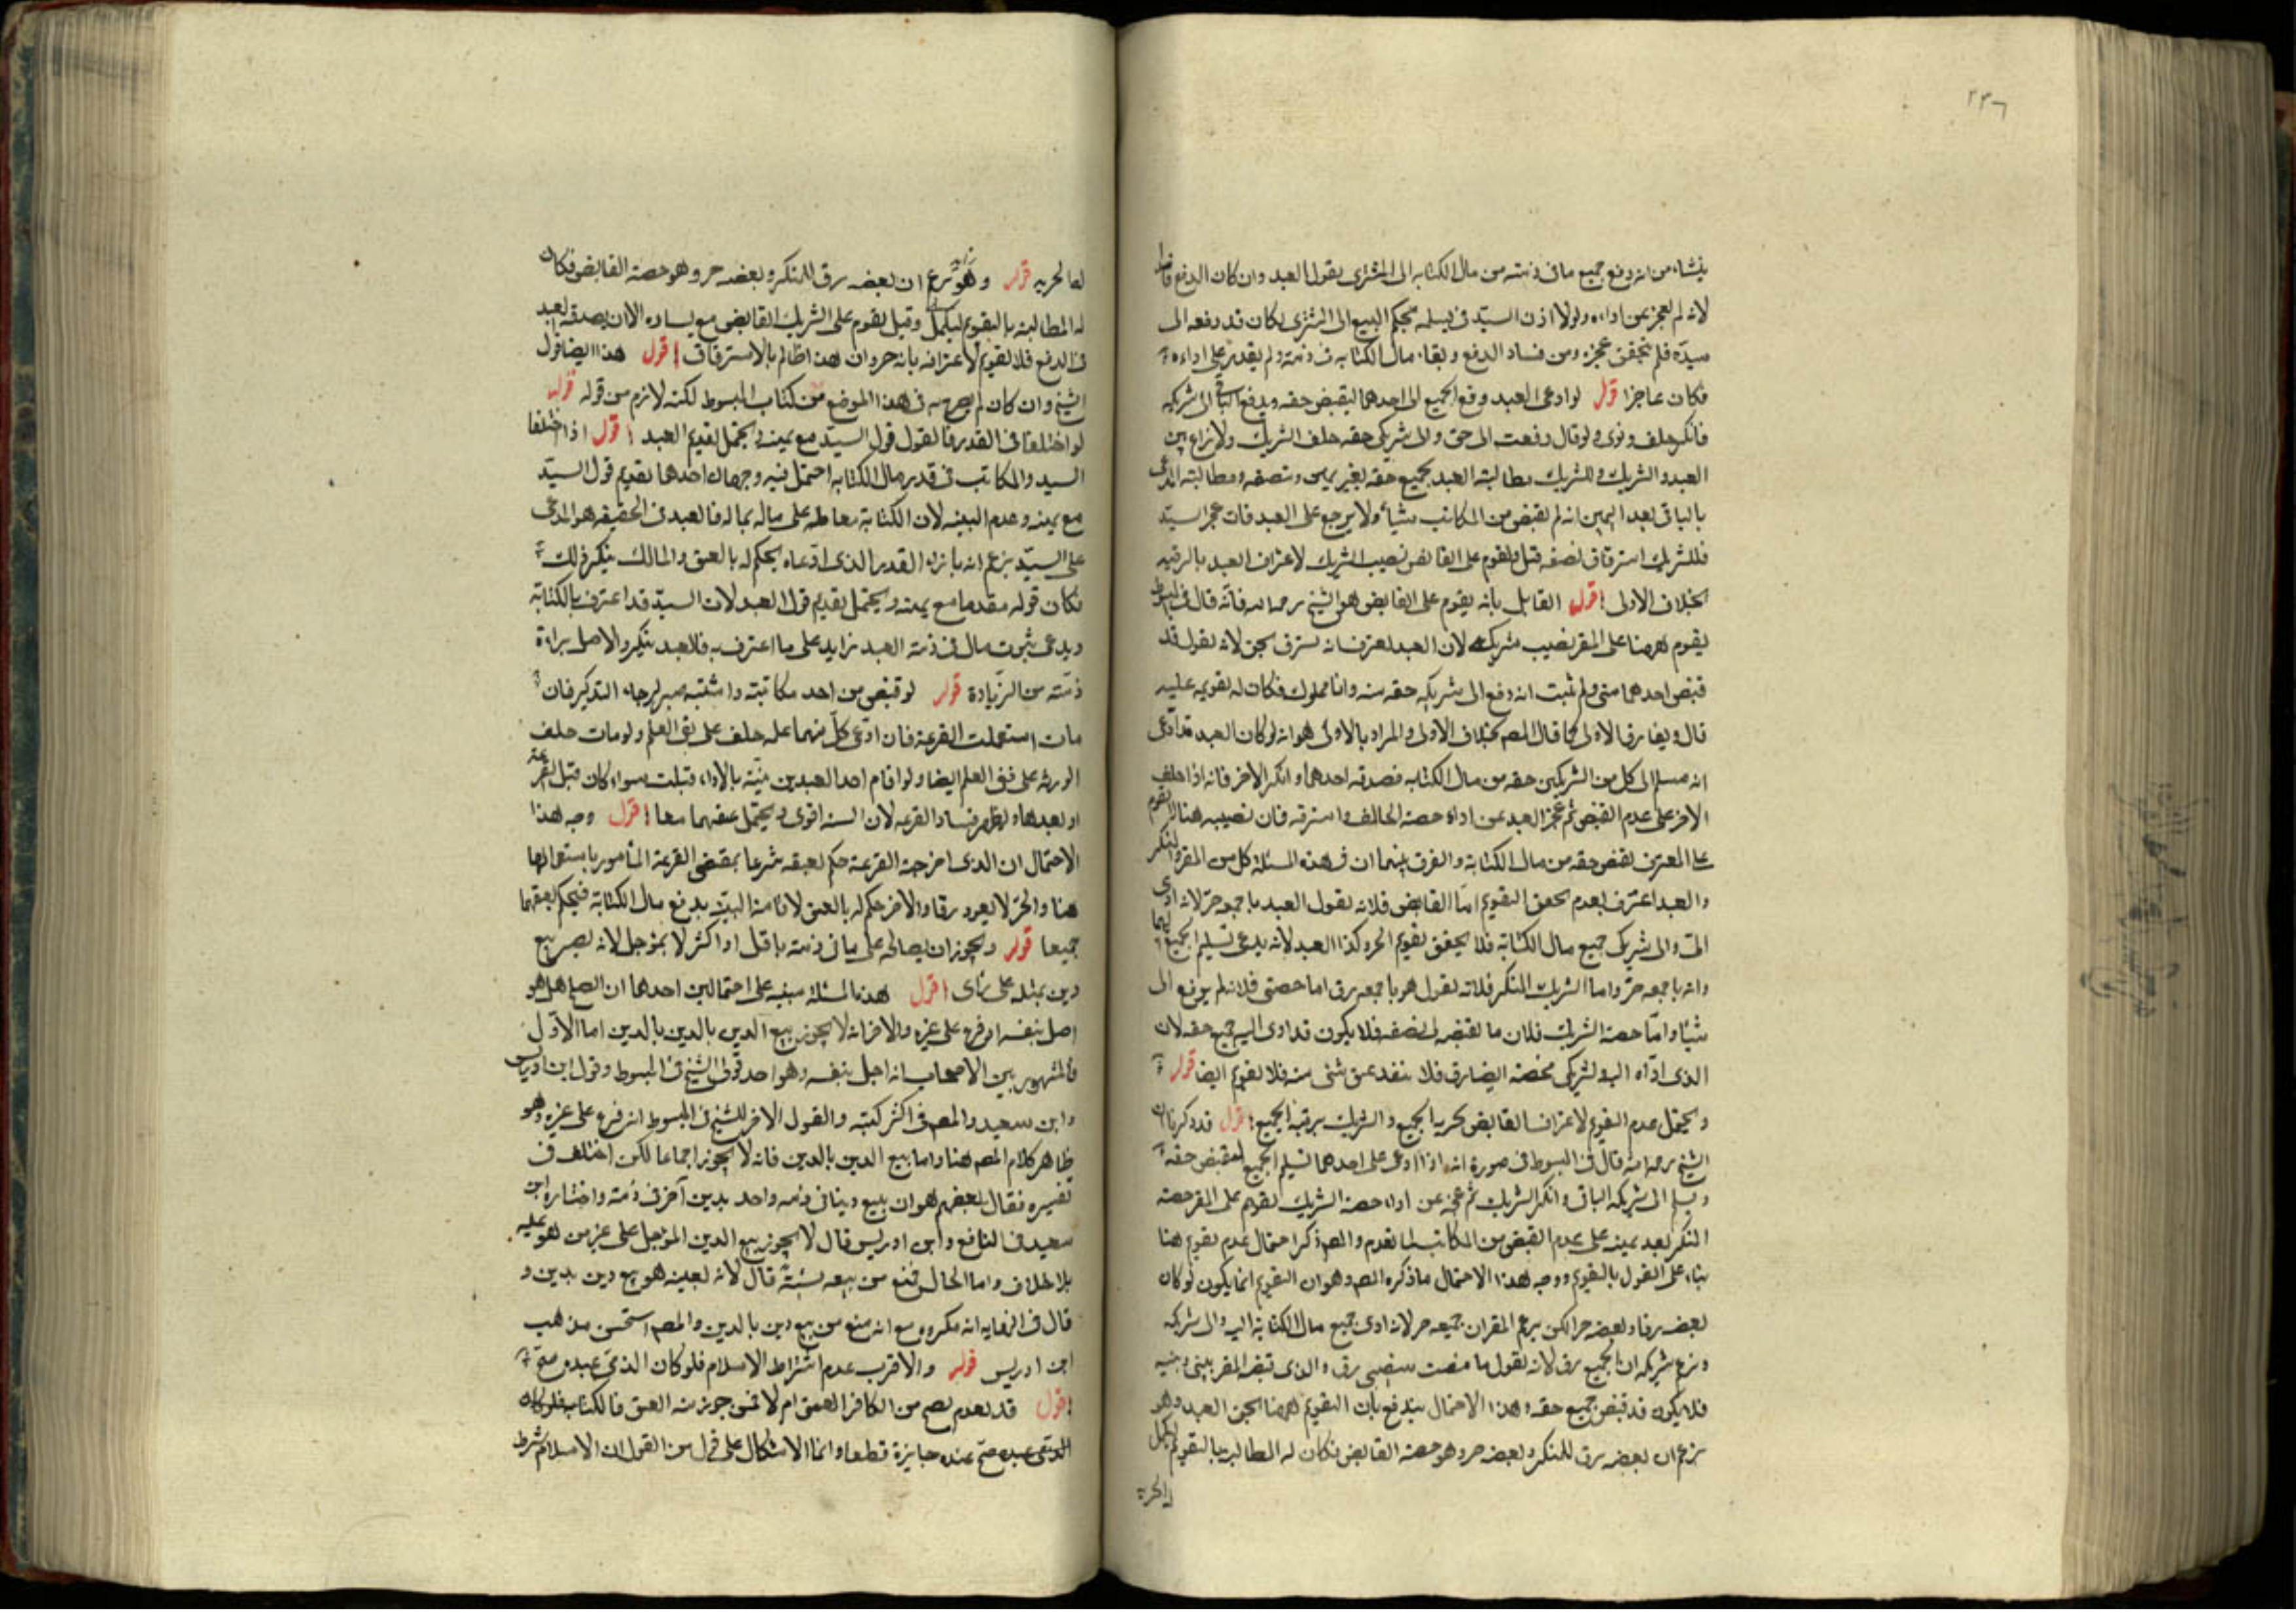 ٢٣٦
ينشاء من انه دفع جميع ما فى ذمته من مال الكتابه الى المشترى بقول العبد وان كان الدفع فاسدا
لانه لم يعجز عن اداءه ولولا اذن السيد فى تسلمه بحكم البيع الى المشترى لكان قد دفعه الى
سيده فلم يتحقق عجزه ومن فساد الدفع وبقاء مال الكتابه فى ذمته ولم يقدر على اداءه
فكان عاجزا قوله لو ادعى العبد دفع الجميع الى احدهما ليقبض حقه ويدفع الباقى الى شريكه
فانكر حلف وبرى ولو قال دفعت الى حقى والى شريكى حقه حلف الشريك ولا نزاع بين
العبد والشريك وللشريك مطالبة العبد بجميع حقه بغير يمين وبنصفه ومطالبة المدعى
بالباقى بعد اليمين انه لم يقبض من المكاتب شيئا ولا يرجع على العبد فان عجز السيد
فللشريك استرقاق نصفه قيل ويقوم على القابض نصيب الشريك لاعتراف العبد بالرقيه
بخلاف الاولى اقول القايل بانه يقوم على القابض هو الشيخ رحمه الله فانه قال فى المبسوط
يقوم ههنا على المقر نصيب شريكه لان العبد يعترف انه يسترق بحق لانه يقول قد
قبض احدهما منى ولم يثبت انه دفع الى شريكه حقه منه وانا مملوك فكان له تقويمه عليه
قال ويفارق الاولى كما قال المصـ بخلاف الاولى والمراد بالاولى هو انه لو كان العبد قد ادعى
انه سلم الى كل من الشريكين حقه من مال الكتابه فصدقه احدهما وانكر الاخر فانه اذا حلف
الاخر على عدم القبض ثم عجز العبد عن اداء حصة الحالف واسترقه فان نصيبه هنا لا يقوم
على المعترف بقبض حقه من مال الكتابة والفرق بينهما ان فى هذه المسئلة كل من المقر والمنكر
والعبد اعترف بعدم تحقق التقويم اما القابض فلانه يقول العبد باجمعه حر لانه ادى
الى والى شريكى جميع مال الكتابة فلا يتحقق تقويم الحر وكذا العبد لانه يدعى تسليم الجميع اليهما
وانه باجمعه حر واما الشريك المنكر فلانه يقول هو باجمعه رق اما حصتى فلانه لم يدفع الى
شيئا واما حصة الشريك فلان ما يقبضه لى نصفه فلا يكون قد ادى اليه جميع حقه لان
الذى اداه اليه ولشريكى فحصته ايضا رق فلا ينفذ عتق شئ منه فلا تقويم ايضا قوله
ويحتمل عدم التقويم لاعتراف القابض بحرية الجميع والشريك برقية الجميع اقول قد ذكرنا ان
الشيخ رحمه الله قال فى المبسوط فى صورة انه اذا ادعى على احدهما تسليم الجميع ليقبض حقه
ويسلم الى شريكه الباقى وانكر الشريك ثم عجز عن اداء حصة الشريك يقوم على المقر حصة
المنكر بعد يمينه على عدم القبض من المكاتب لما تقدم والمصـ ذكر احتمال عدم تقويم هنا
بناء على القول بالتقويم ووجه هذا الاحتمال ما ذكره المصـ وهو ان التقويم انما يكون لو كان
بعضه رقا وبعضه حرا لكن يزعم المقر ان جميعه حر لانه ادى جميع مال الكتابة اليه والى شريكه
ويزعم شريكه ان الجميع رق لانه يقول ما قبضت نصيبى رق والذى قبضه المقر بينى وبينه
فلا يكون قد قبض جميع حقه وهذا الاحتمال يندفع بان التقويم ههنا لحق العبد وهو
يزعم ان بعضه رق للمنكر وبعضه حر وهو حصة القابض فكان له المطالبة بالتقويم ليكمل
له الحرية
له الحريه قوله وهو يزعم ان بعضه رق للمنكر وبعضه حر وهو حصة القابض فكان
له المطالبة بالتقويم ليكمل وقيل يقوم على الشريك القابض مع يساره الا ان يصدقه العبد
فى الدفع فلا تقويم لاعترافه بانه حر وان هذا ظالم بالاسترقاق اقول هذا ايضا قول
الشيخ وان كان لم يصرح به فى هذا الموضع من كتاب المبسوط لكنه لازم من قوله قوله
لو اختلفا فى القدر فالقول قول السيد مع يمينه ويحتمل تقديم العبد اقول اذا اختلفا
السيد والمكاتب فى قدر مال الكتابه احتمل فيه وجهان احدهما تقديم قول السيد
مع يمينه وعدم البينه لان الكتابة معاملة على ماله بماله فالعبد فى الحقيقه هو المدعى
على السيد يزعم انه باداء القدر الذى ادعاه يحكم له بالعتق والمالك ينكر ذلك
فكان قوله مقدما مع يمينه ويحتمل تقديم قول العبد لان السيد قد اعترف بالكتابة
ويدعى ثبوت مال فى ذمة العبد زايد على ما اعترف به فالعبد ينكر والاصل براءة
ذمته من الزيادة قوله لو قبض من احد مكاتبته واشتبه صبر لرجاء التذكير فان
مات استعملت القرعة فان ادعى كل منهما علمه حلف على نفى العلم ولو مات حلف
الورثه على نفى العلم ايضا ولو اقام احد العبدين بينة بالاداء قبلت سواء كان قبل القرعة
او بعدها ويظهر فساد القرعه لان البينه اقوى ويحتمل عتقهما معا اقول وجه هذا
الاحتمال ان الذى اخرجته القرعة حكم بعتقه شرعا بمقتضى القرعة المامور باستعمالها
هنا والحر لا يعود رقا والاخر حكم له بالعتق لاقامته البينة بدفع مال الكتابة فيحكم بعتقهما
جميعا قوله ويجوز ان يصالحه على ما فى ذمته باقل او اكثر لا بمؤجل لانه يصير بيع
دين بمثله على راى اقول هذه المسئلة مبنيه على احتمالين احدهما ان الصلح هل هو
اصل بنفسه او فرع على غيره والاخر انه لا يجوز بيع الدين بالدين اما الاول
فالمشهور بين الاصحاب انه اصل بنفسه وهو احد قولى الشيخ فى المبسوط وقول ابن ادريس
وابن سعيد والمصـ فى اكثر كتبه والقول الاخر للشيخ فى المبسوط انه فرع على غيره وهو
ظاهر كلام المصـ هنا واما بيع الدين بالدين فانه لا يجوز اجماعا لكن اختلف فى
تفسيره فقال بعضهم هو ان يبيع دينا فى ذمه واحد بدين آخر فى ذمته واختاره ابن
سعيد فى النافع وابن ادريس قال لا يجوز بيع الدين المؤجل على غير من هو عليه
بلا خلاف واما الحال فمنع من بيعه قال لانه بعينه هو بيع دين بدين و
قال فى النهايه انه مكروه مع انه منع من بيع دين بالدين والمصـ استحسن مذهب
ابن ادريس قوله والاقرب عدم اشتراط الاسلام فلو كان الذمى عبده صح
اقول قد تقدم يصح من الكافر العتق ام لا فمن جوز منه العتق فالكتابه فلو كان
الذمى عبده صح عنده جايزة قطعا وانما الاشكال على قول من القول ان الاسلام شرط